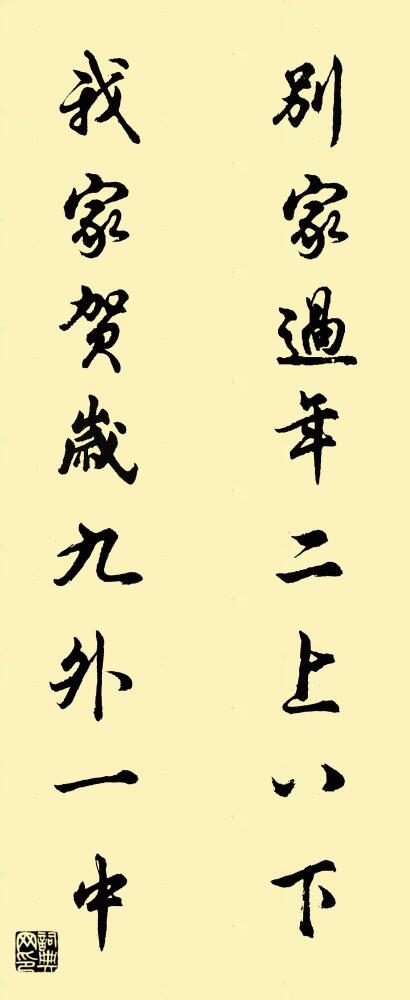 別家過年二上八下
我家贺歲九外一中
詞典网印